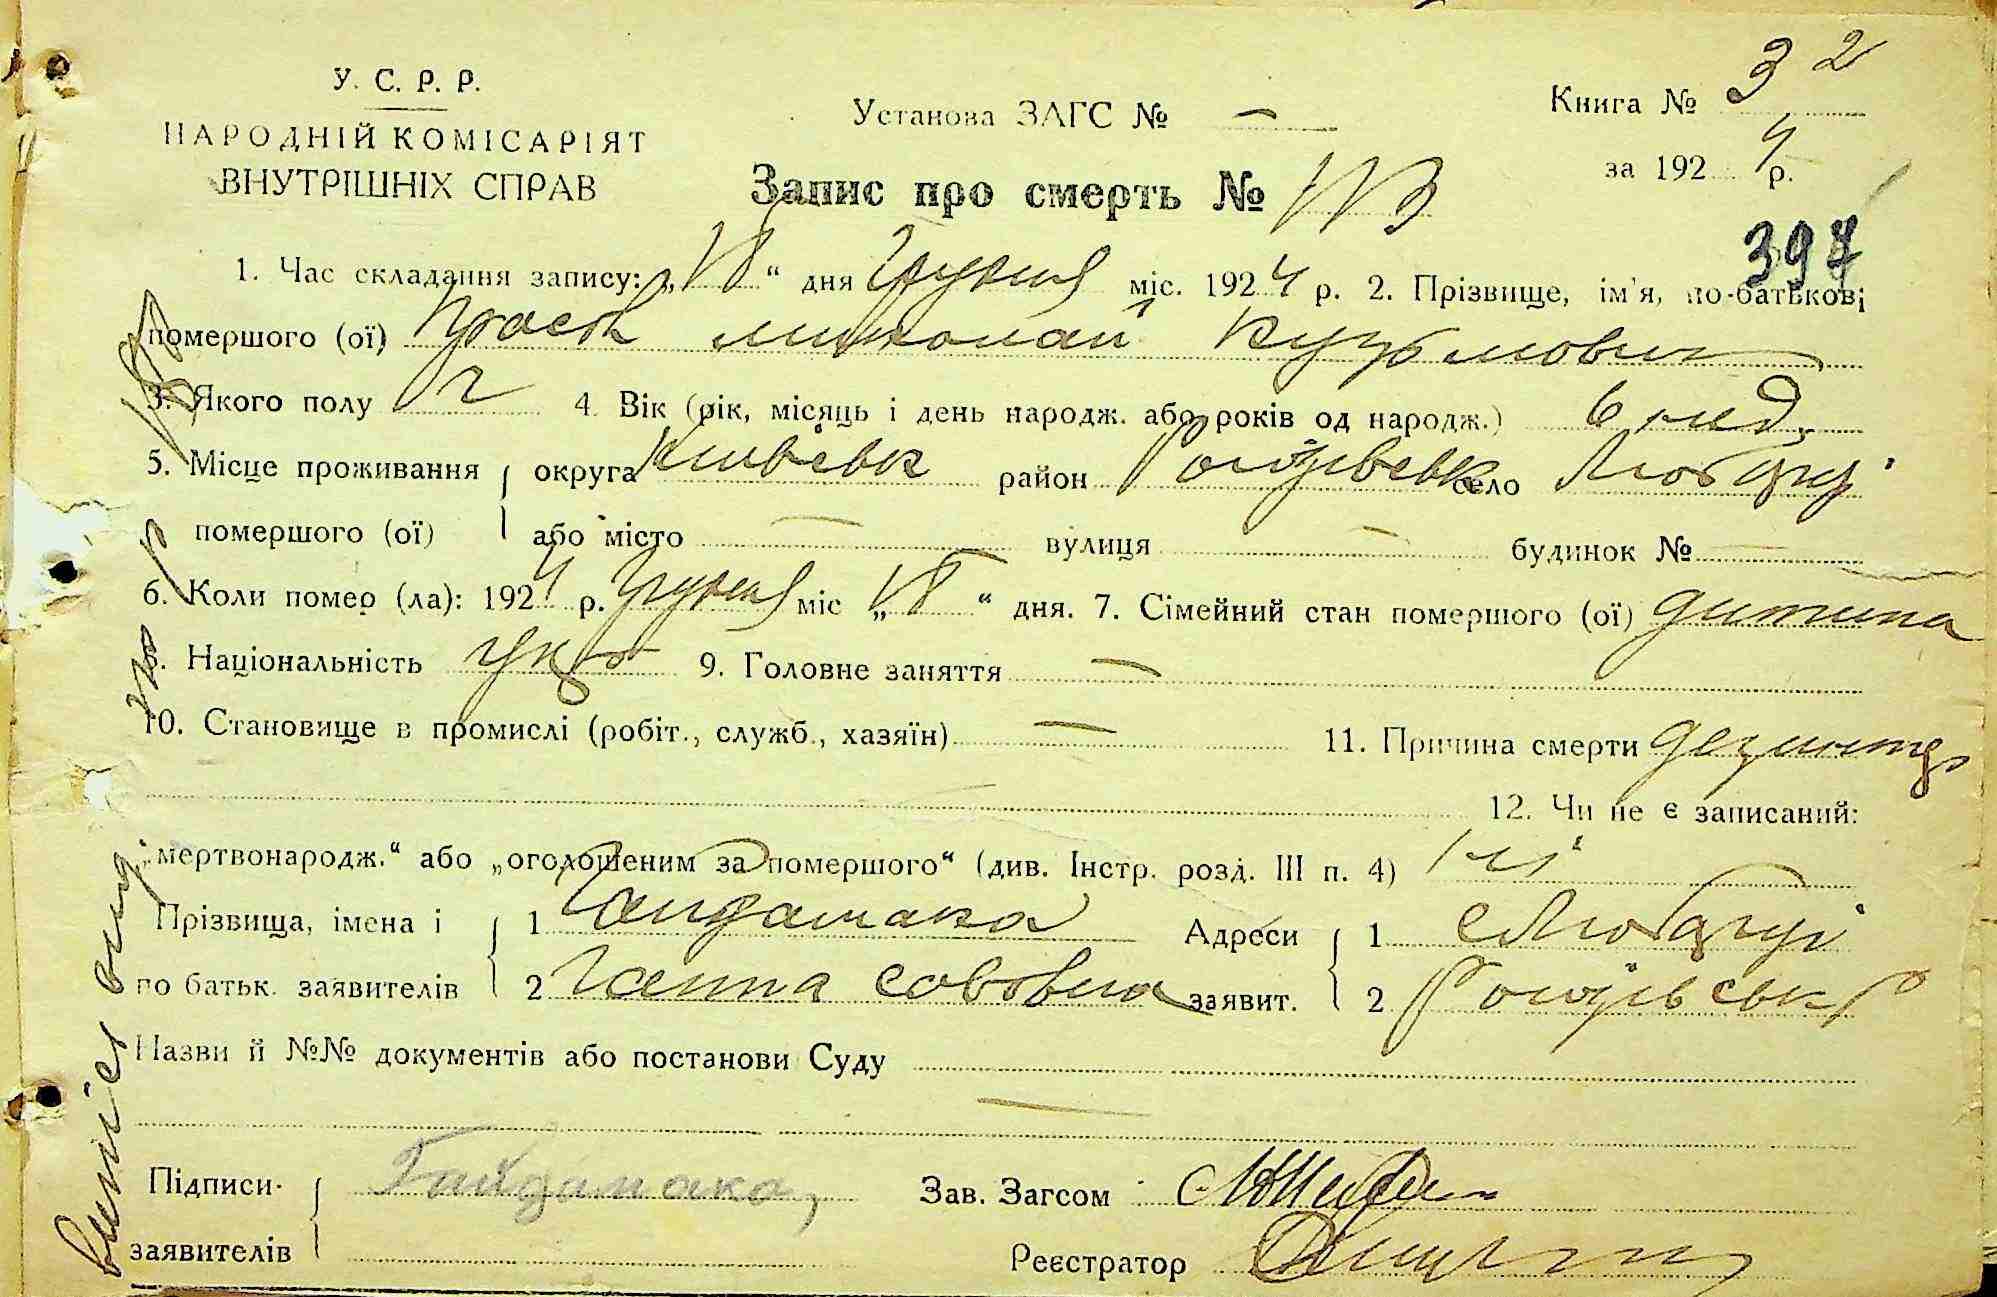 У. С. Р. Р.
НАРОДНІЙ КОМІСАРІЯТ
ВНУТРІШНІХ СПРАВ
Установа ЗАГС № —
Книга № 32
за 1924 р.
Запис про смерть №
397
1. Час складання запису: „18“ дня Грудня міс. 1924 р. 2. Прізвище, ім'я, по-батькові
помершого (ої) Миколай Кузьмович
3. Якого полу ч 4. Вік (рік, місяць і день народж. або років од народж.) 6 нед.
5. Місце проживання округа Київськ район Рогозівськ село Любарці
помершого (ої) або місто — вулиця — будинок № —
6. Коли помер (ла): 1924 р. Грудня міс „18“ дня. 7. Сімейний стан помершого (ої) дитина
8. Національність укр 9. Головне заняття —
10. Становище в промислі (робіт., служб., хазяїн) — 11. Причина смерти
12. Чи не є записаний:
„мертвонародж.“ або „оголошеним за помершого“ (див. Інстр. розд. III п. 4) ні
Прізвища, імена і 1 Гайдамака Адреси 1 с Любарці
по батьк. заявителів 2 Ганна Сововна заявит. 2 Рогозівськ р
Назви й №№ документів або постанови Суду
—
Підписи Гайдамака,
Зав. Загсом
заявителів
Реєстратор